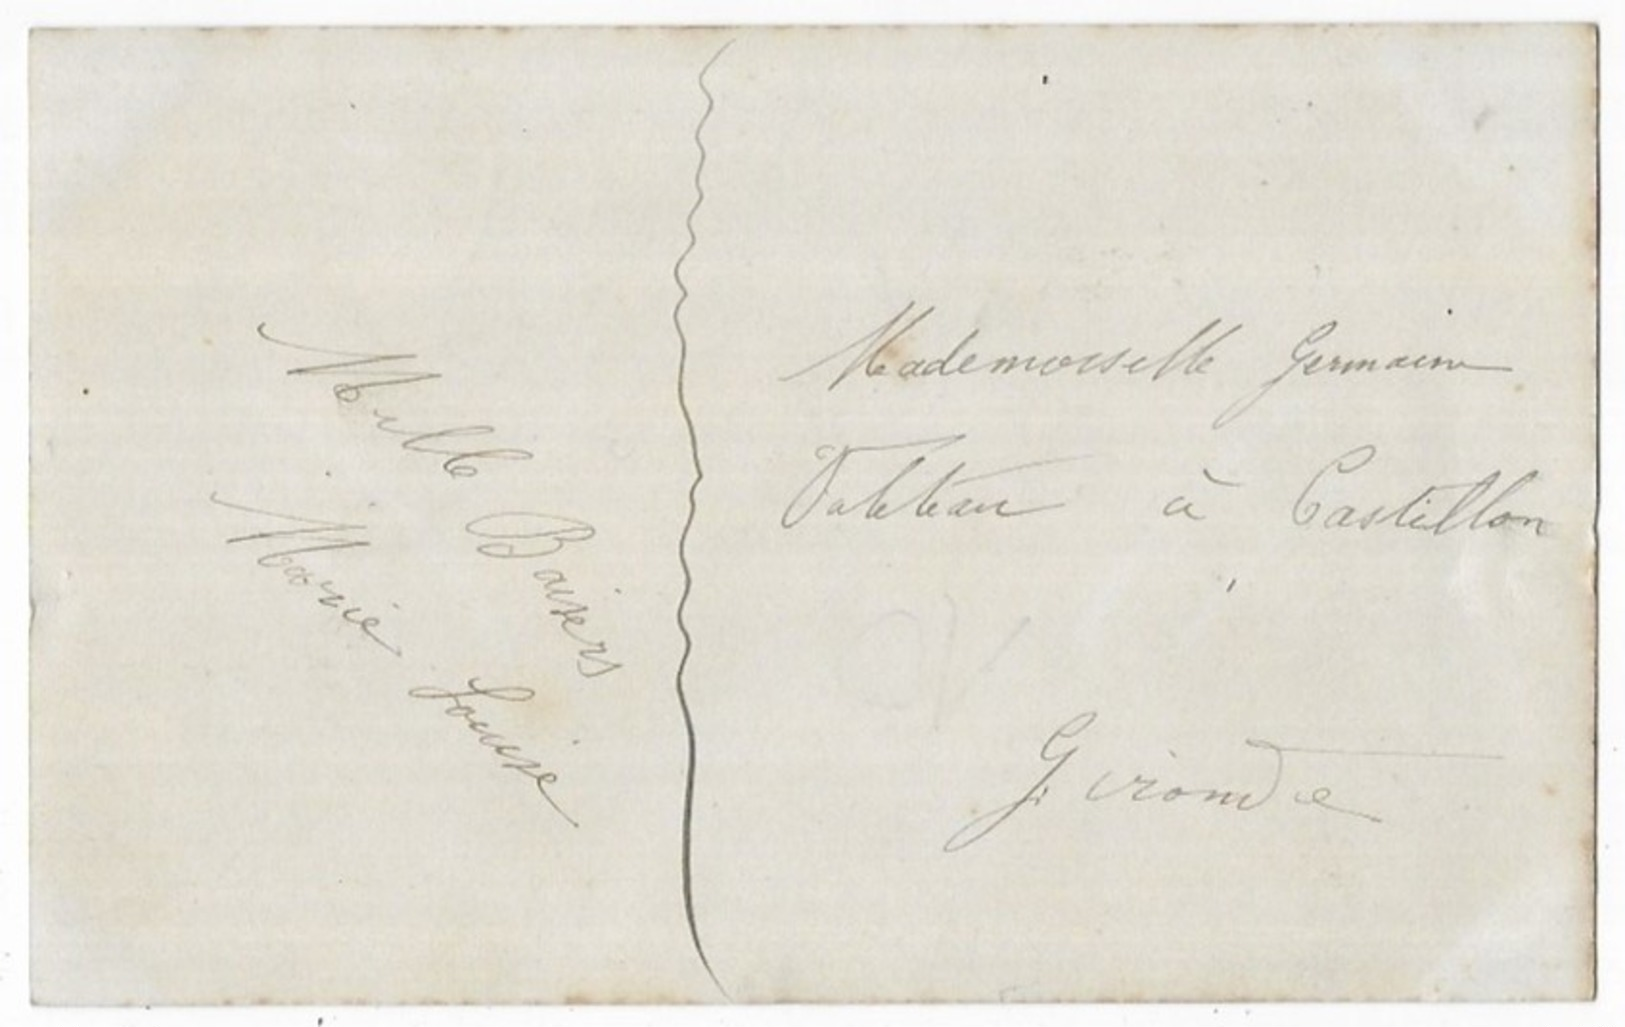 Mille Baisers
Marie Louise
Mademoiselle Germaine
à Castillon
Gironde